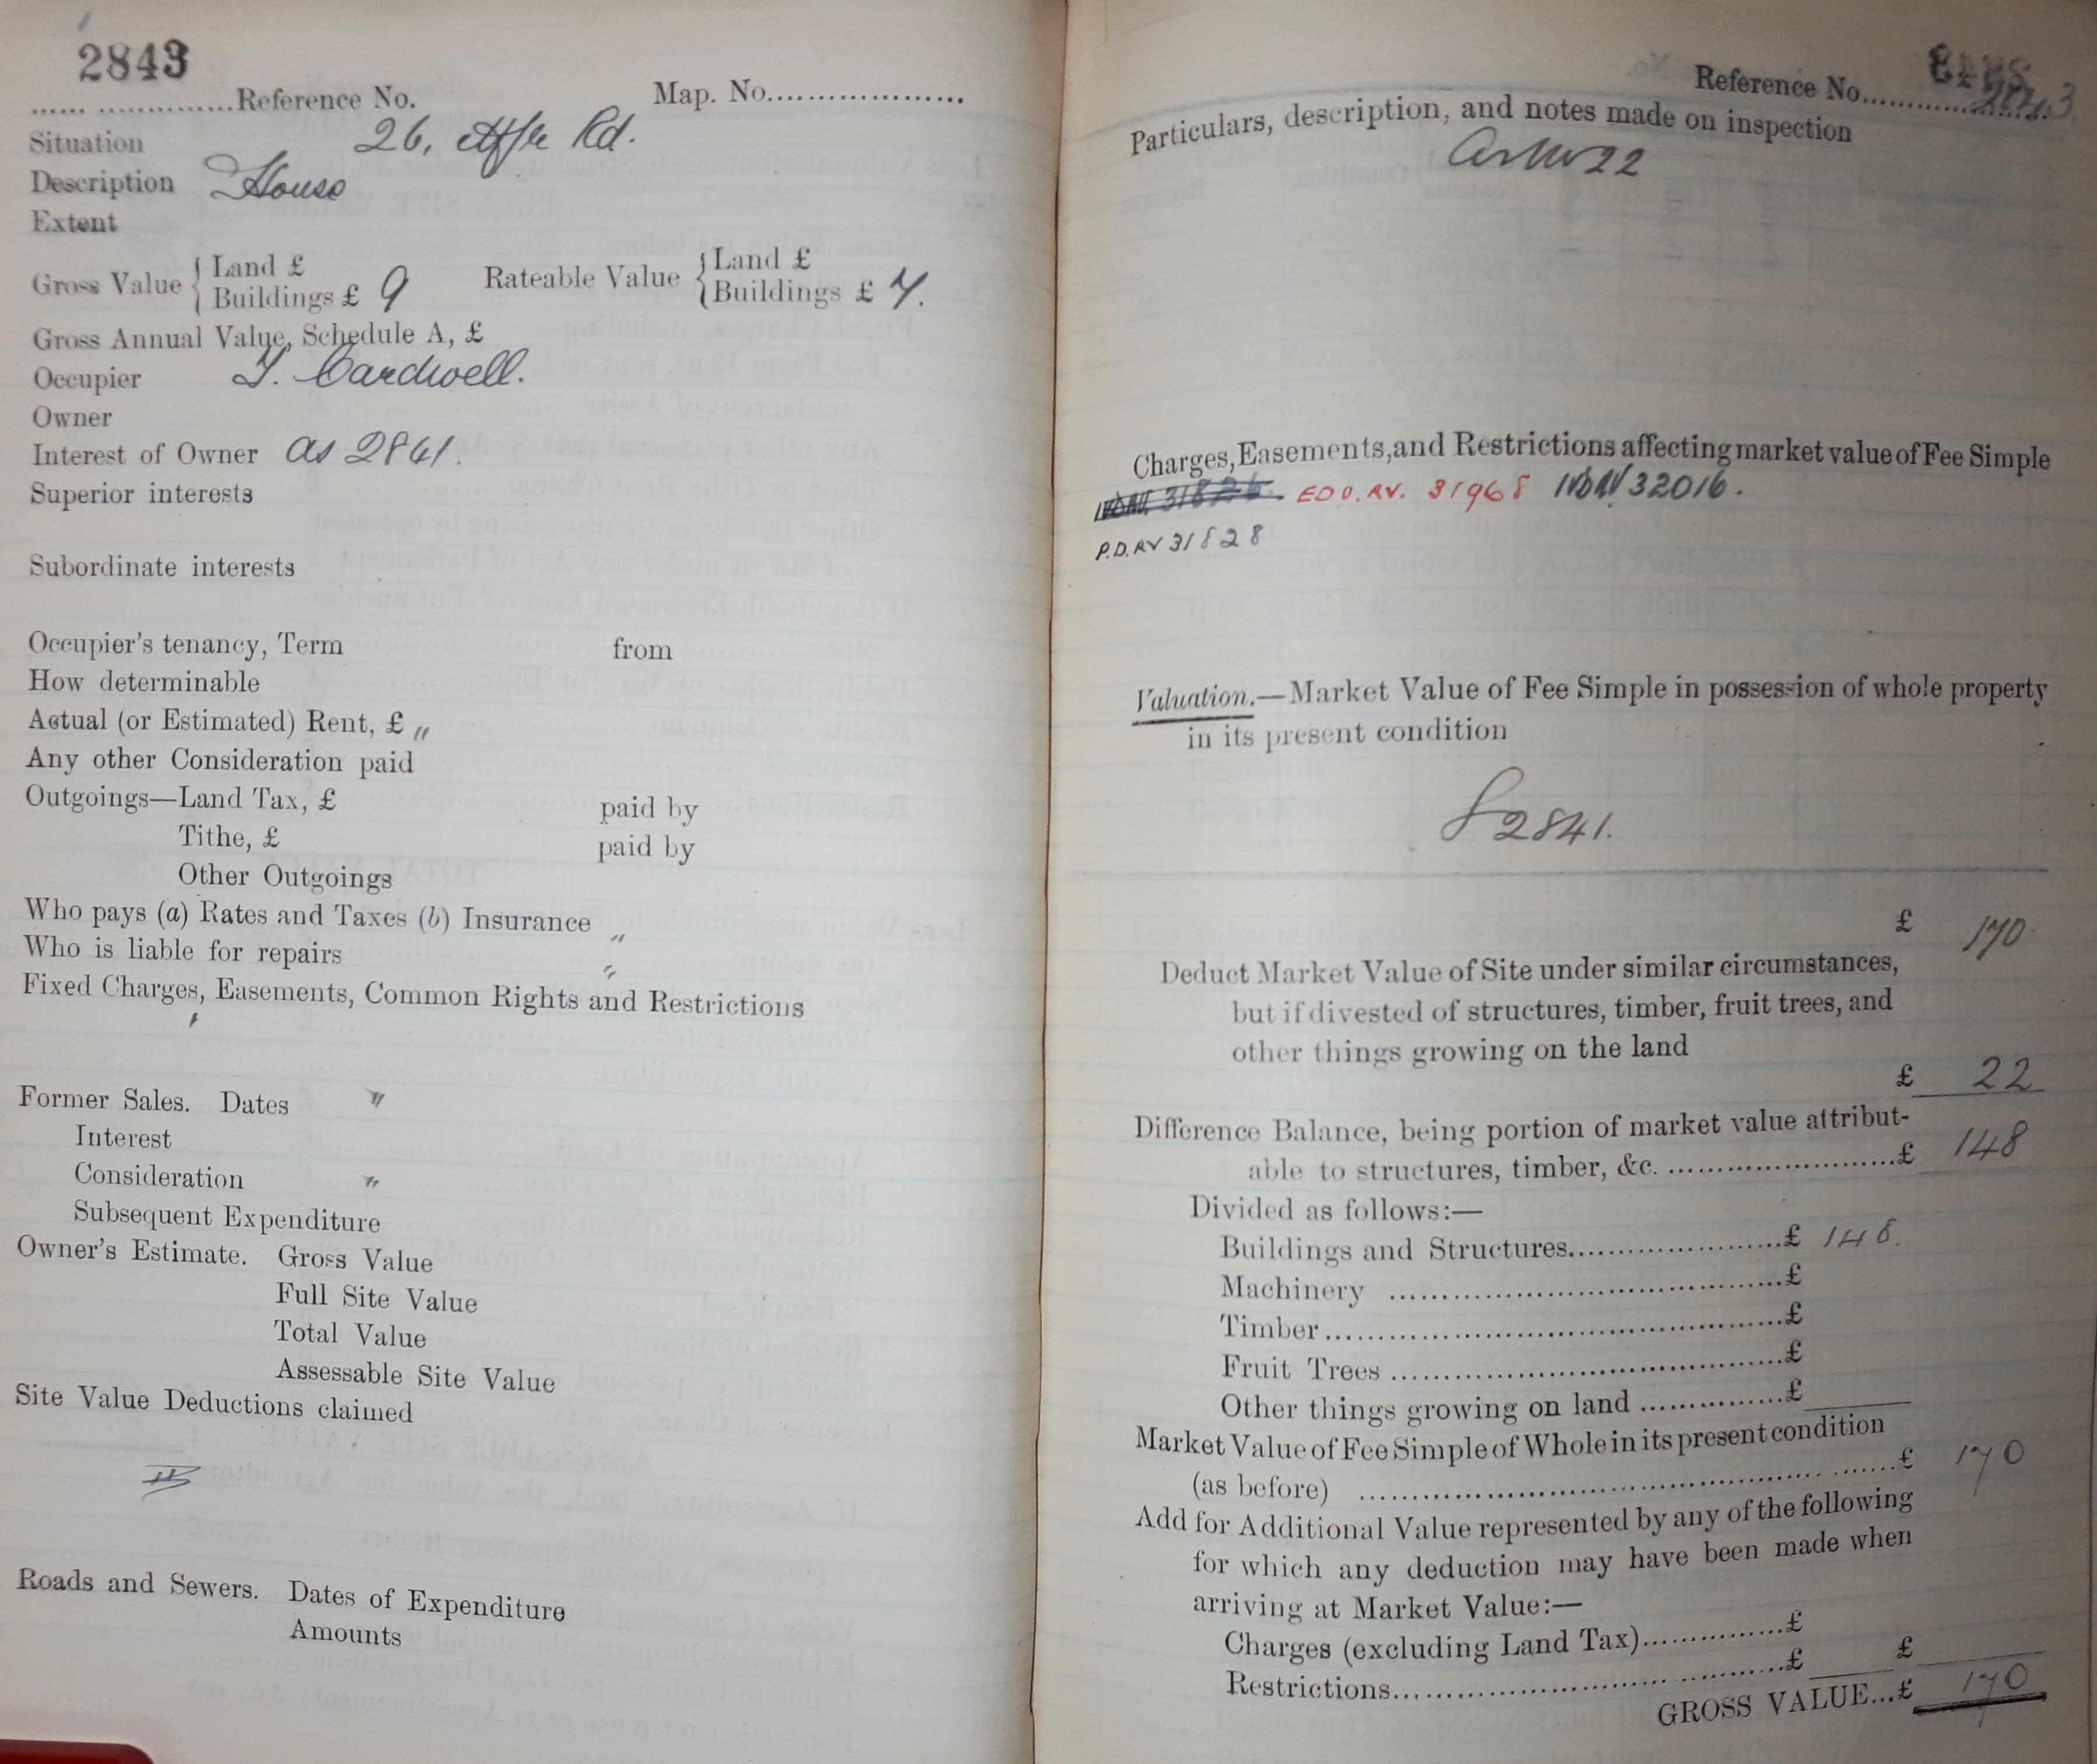 2843
...... ...............Reference No. Map. No...................
Situation 26, Rd.
Description House
Extent
Gross Value { Land £
Buildings £ 9
Rateable Value { Land £
Buildings £ 7.
Gross Annual Value, Schedule A, £
Occupier T. Cardwell.
Owner
Interest of Owner as 2841.
Superior interests
Subordinate interests
Occupier's tenancy, Term from
How determinable
Actual (or Estimated) Rent, £ "
Any other Consideration paid
Outgoings—Land Tax, £ paid by
Tithe, £ paid by
Other Outgoings
Who pays (a) Rates and Taxes (b) Insurance "
Who is liable for repairs "
Fixed Charges, Easements, Common Rights and Restrictions
Former Sales. Dates "
Interest
Consideration "
Subsequent Expenditure
Owner's Estimate. Gross Value
Full Site Value
Total Value
Assessable Site Value
Site Value Deductions claimed
Roads and Sewers. Dates of Expenditure
Amounts
Reference No. 2843
Particulars, description, and notes made on inspection
Charges, Easements, and Restrictions affecting market value of Fee Simple
EDO. RV. 31968 32016.
P.D. RV 31828
Valuation.—Market Value of Fee Simple in possession of whole property
in its present condition
2841.
£ 170
Deduct Market Value of Site under similar circumstances,
but if divested of structures, timber, fruit trees, and
other things growing on the land
£ 22
Difference Balance, being portion of market value attribut-
able to structures, timber, &c. ...........................£ 148
Divided as follows:—
Buildings and Structures.......................£ 148.
Machinery .......................................£
Timber.............................................£
Fruit Trees .......................................£
Other things growing on land ................£
Market Value of Fee Simple of Whole in its present condition
(as before) ..........................................................£ 170
Add for Additional Value represented by any of the following
for which any deduction may have been made when
arriving at Market Value:—
Charges (excluding Land Tax)...............£
Restrictions.......................................£ £
GROSS VALUE...£ 170